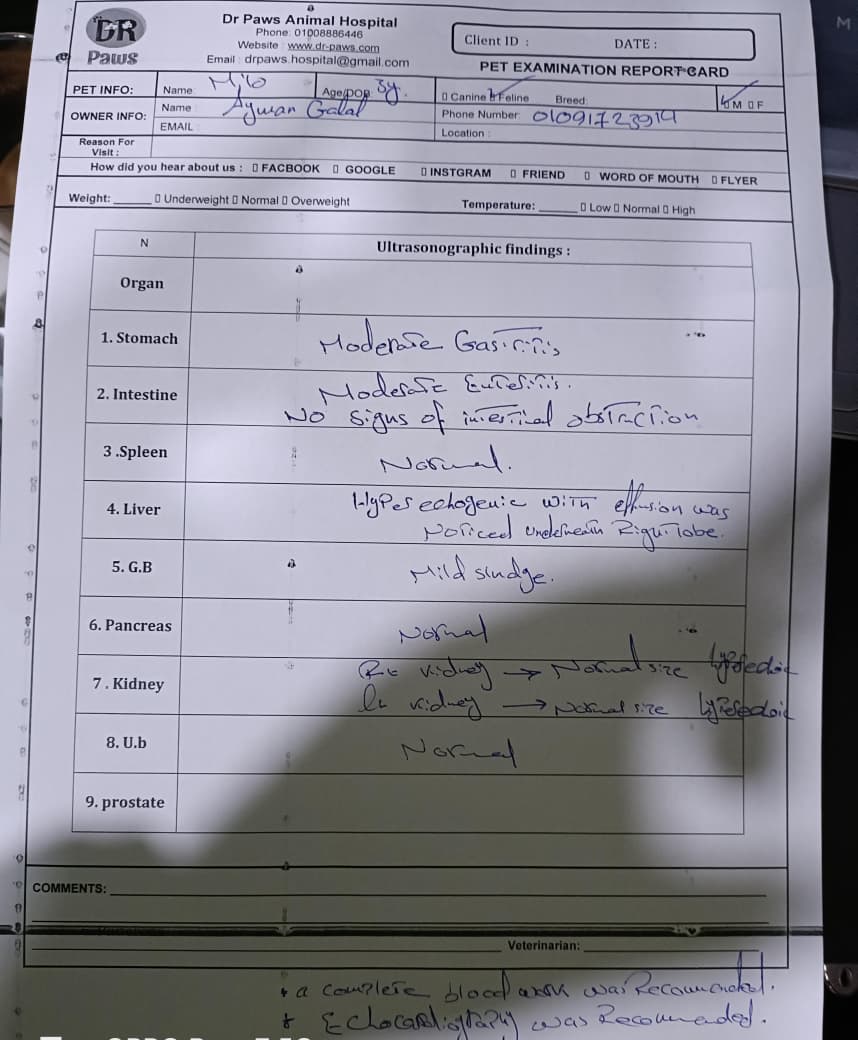 DR
Paws
Dr Paws Animal Hospital
Phone: 01008886446
Website : www.dr-paws.com
Email : drpaws.hospital@gmail.com
Client ID : DATE :
PET EXAMINATION REPORT CARD
PET INFO: Name Milo Age/DOP 3y. Canine Feline Breed M F
OWNER INFO: Name Ayman Galal Phone Number: 01091723914
EMAIL Location :
Reason For
Visit :
How did you hear about us : FACBOOK GOOGLE INSTGRAM FRIEND WORD OF MOUTH FLYER
Weight: ______ Underweight Normal Overweight Temperature: ______ Low Normal High
N Ultrasonographic findings :
Organ
1. Stomach Moderate Gastritis
2. Intestine Moderate Enteritis.
No signs of intestinal obstraction
3 .Spleen Normal.
4. Liver Hyperechogenic with effusion was
Noticed underneath Right lobe.
5. G.B Mild sludge.
6. Pancreas Normal
7 . Kidney Rt kidney → Normal size
Lt kidney → Normal size
8. U.b Normal
9. prostate
COMMENTS:
Veterinarian:
* a complete blood work was Recommended.
* Echocardiography was Recommended.